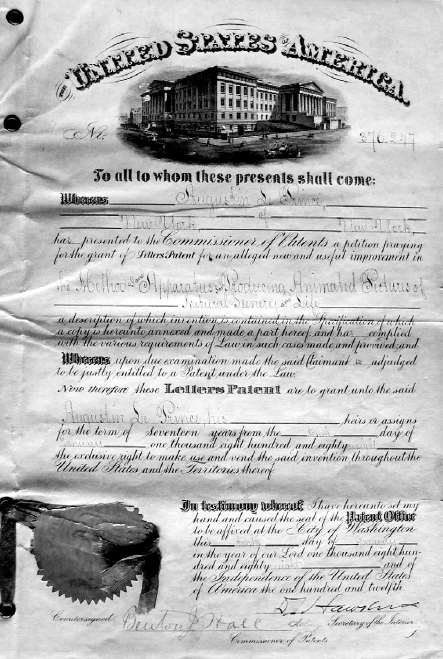 THE UNITED STATES OF AMERICA.
No. 376,247
To all to whom these presents shall come:
Whereas Augustin Le Prince,
of
New York, New York,
has presented to the Commissioner of Patents a petition praying
for the grant of Letters Patent for an alleged new and useful improvement in
the Method and Apparatus Producing Animated Pictures of
Natural Scenery and Life
a description of which invention is contained in the Specification of which
a copy is hereunto annexed and made a part hereof, and has complied
with the various requirements of Law in such cases made and provided, and
Whereas upon due examination made the said Claimant is adjudged
to be justly entitled to a Patent under the Law.
Now therefore these Letters Patent are to grant unto the said
Augustin Le Prince, his heirs or assigns
for the term of Seventeen years from the day of
one thousand eight hundred and eighty
the exclusive right to make use and vend the said invention throughout the
United States and the Territories thereof.
In testimony whereof I have hereunto set my
hand and caused the seal of the Patent Office
to be affixed at the City of Washington
this day of
in the year of our Lord one thousand eight hun-
dred and eighty and of
the Independence of the United States
of America the one hundred and twelfth.
Countersigned Benton J. Hall
Secretary of the Interior.
Commissioner of Patents